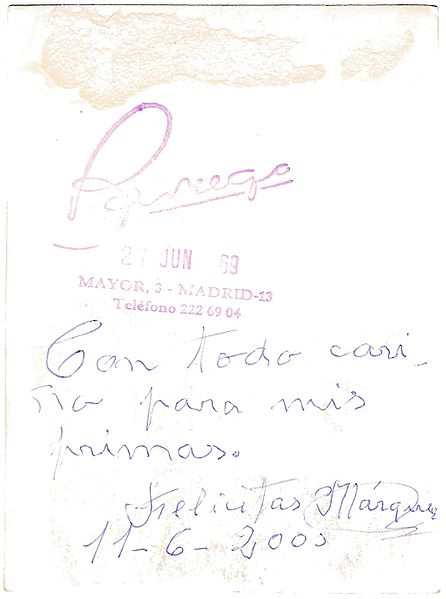 27 JUN 69
MAYOR, 3 - MADRID-13
Teléfono 222 69 04
Con todo cari-
ño para mis
primas.
Felicitas Márquez
11-6-2003